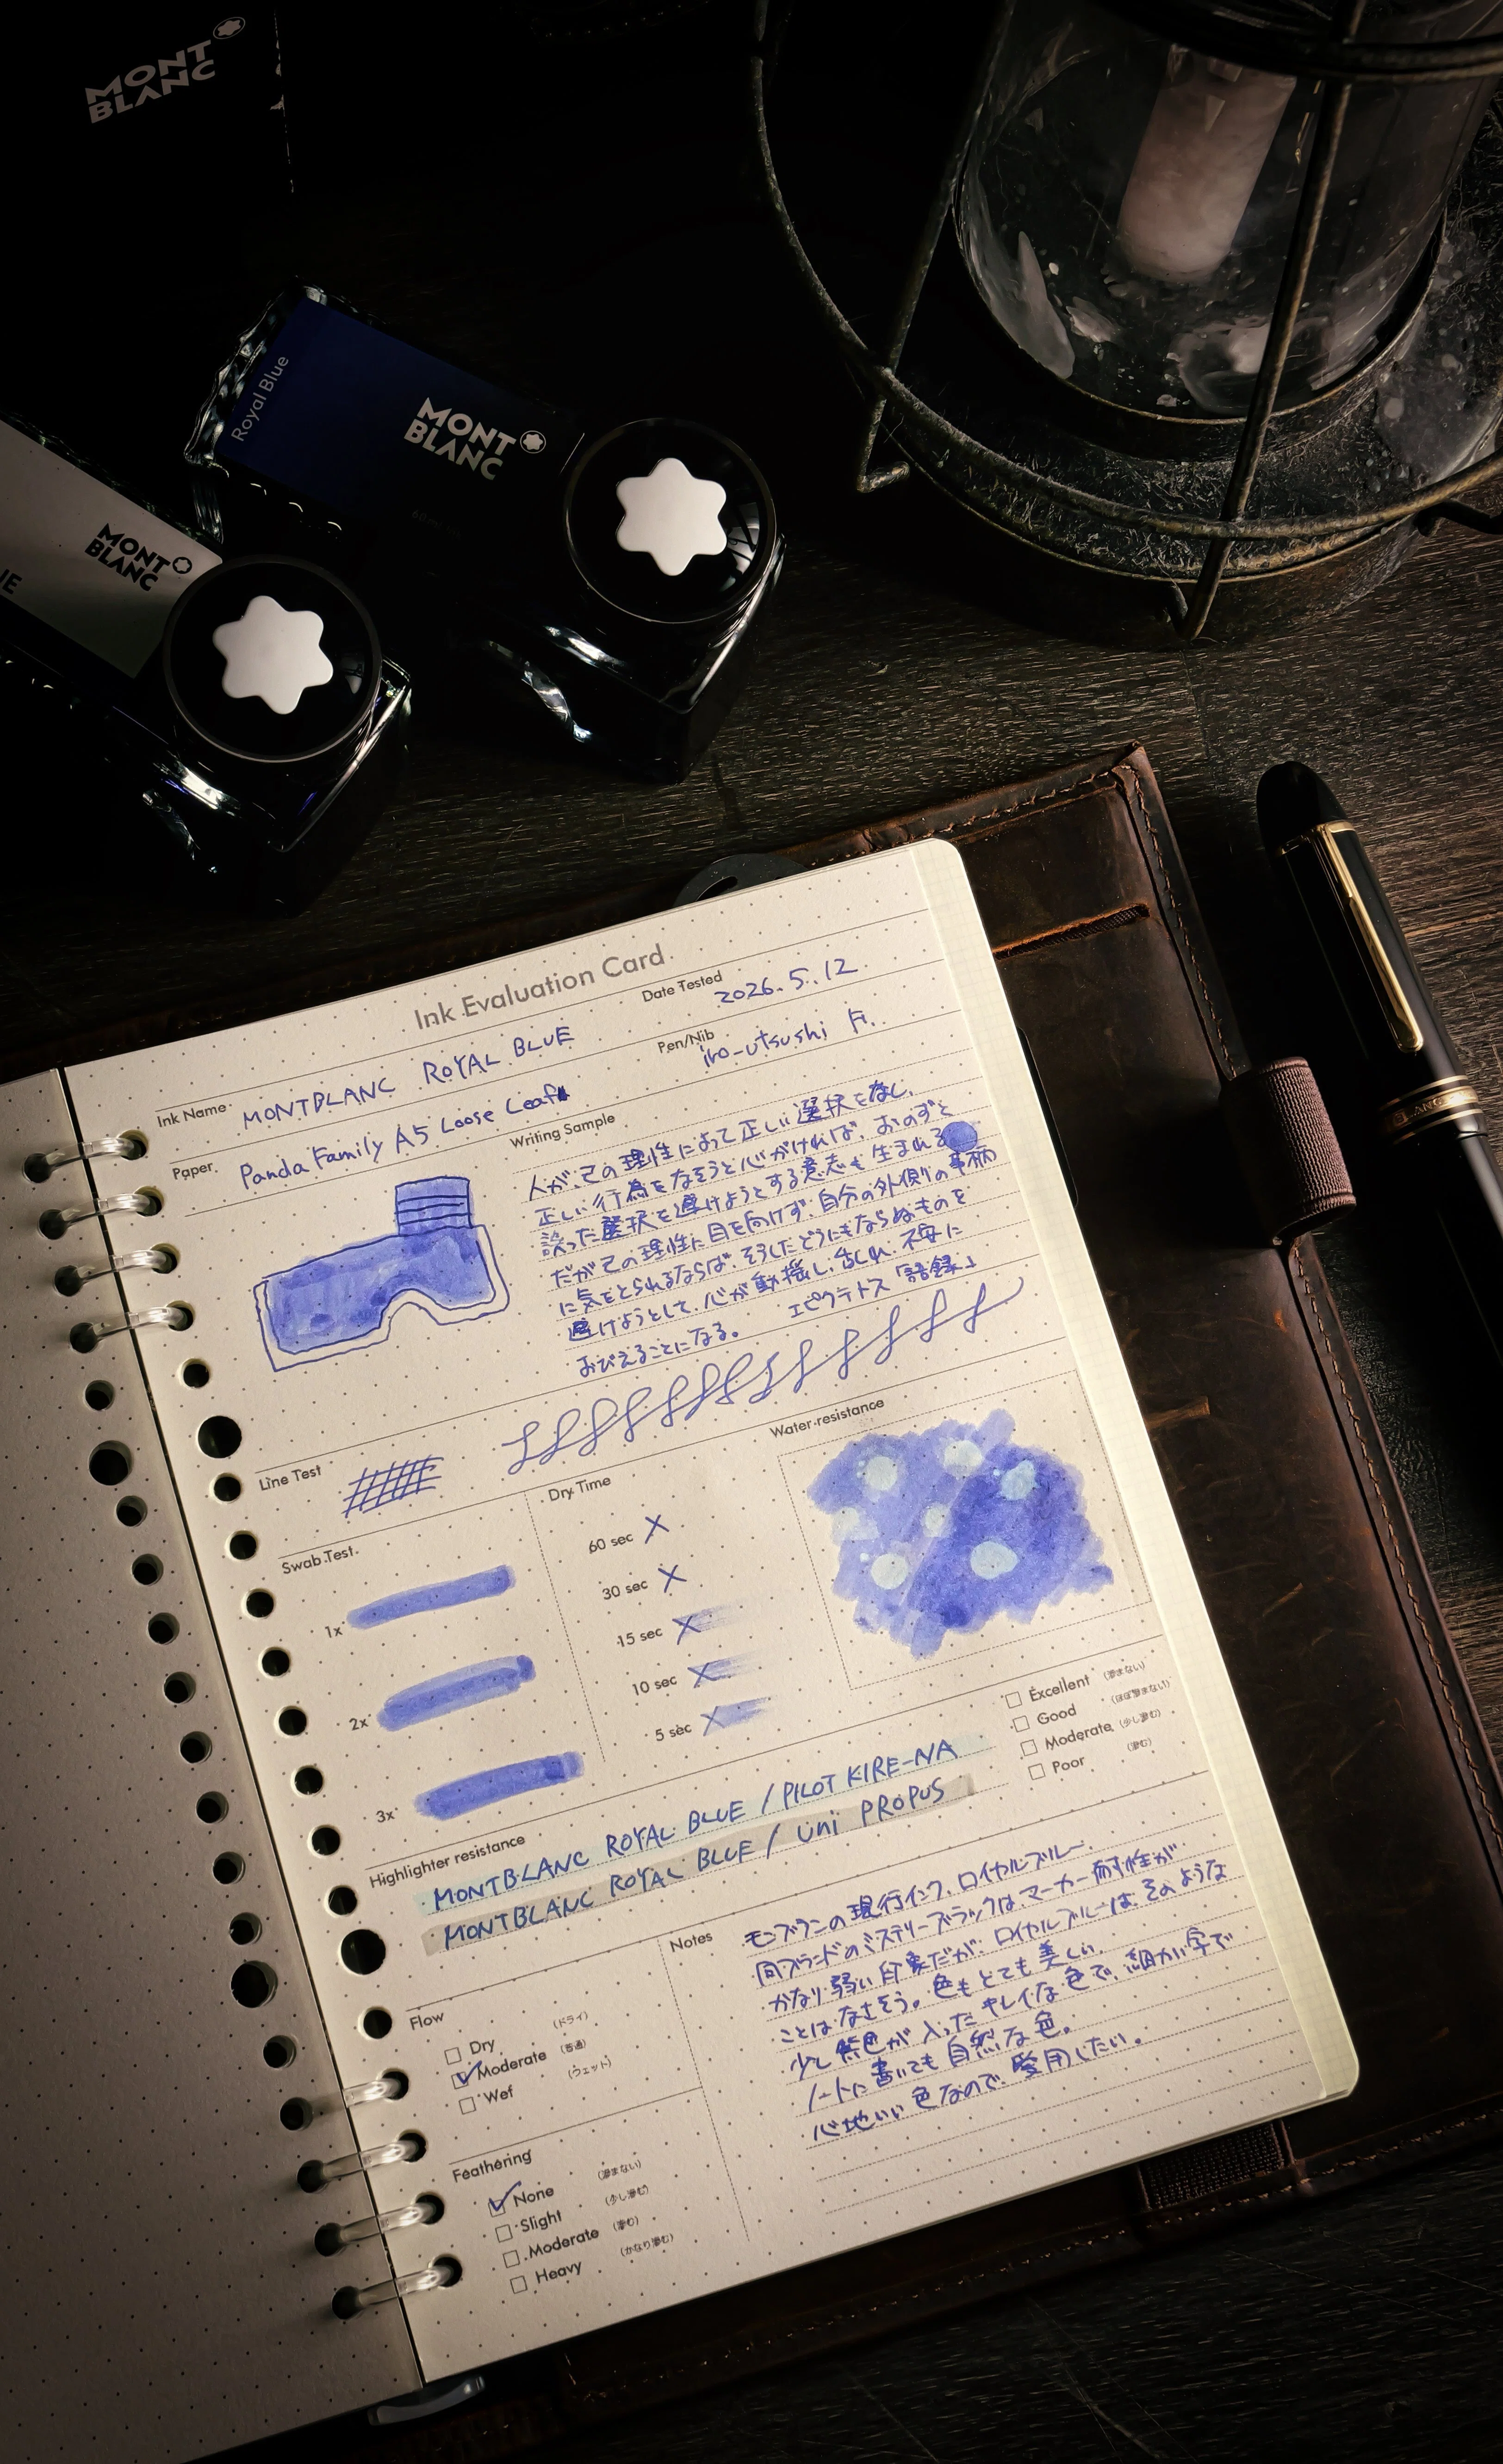 MONT
BLANC
Royal Blue
MONT
BLANC
MONT
BLANC
Ink Evaluation Card
Ink Name MONTBLANC ROYAL BLUE
Date Tested 2026.5.12
Paper Panda Family A5 Loose Leaf
Pen/Nib iro-utsushi F.
Writing Sample
人が、己の理性によって正しい選択をなし、
正しい行為をなそうと心がければ、おのずと
誤った選択を避けようとする意志も生まれる
だが己の理性に目を向けず、自分の外側の事柄
に気をとられるならば、そうしたどうにもならぬものを
避けようとして、心が動揺し、乱れ、不安に
おびえることになる。 エピクテトス「語録」
Line Test
Swab Test
1x
2x
3x
Dry Time
60 sec
30 sec
15 sec
10 sec
5 sec
Water resistance
Excellent (滲まない)
Good (ほぼ滲まない)
Moderate (少し滲む)
Poor (滲む)
Highlighter resistance
MONTBLANC ROYAL BLUE / PILOT KIRE-NA
MONTBLANC ROYAL BLUE / uni PROPUS
Flow
Dry (ドライ)
Moderate (普通)
Wet (ウェット)
Feathering
None (滲まない)
Slight (少し滲む)
Moderate (滲む)
Heavy (かなり滲む)
Notes
モンブランの現行インク、ロイヤルブルー。
同ブランドのミステリーブラックは、マーカー耐性が
かなり弱い印象だが、ロイヤルブルーは、そのような
ことはなさそう。色もとても美しい。
少し紫色が入ったキレイな色で、細かい字で
ノートに書いても自然な色。
心地いい色なので、愛用したい。